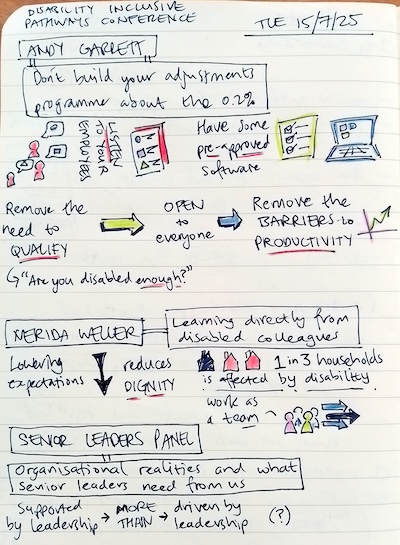 DISABILITY INCLUSIVE
PATHWAYS CONFERENCE
TUE 15/7/25
ANDY GARRETT
Don't build your adjustments
programme about the 0.2%
LISTEN
TO YOUR
EMPLOYEES
Have some
pre-approved
software
Remove the
need to
QUALIFY
OPEN
to
everyone
Remove the
BARRIERS to
PRODUCTIVITY
"Are you disabled enough?"
NERIDA WELLER
Learning directly from
disabled colleagues
Lowering
expectations
reduces
DIGNITY
1 in 3 households
is affected by disability
work as
a team
SENIOR LEADERS PANEL
Organisational realities and what
senior leaders need from us
Supported
by leadership → MORE
THAN → driven by
leadership (?)